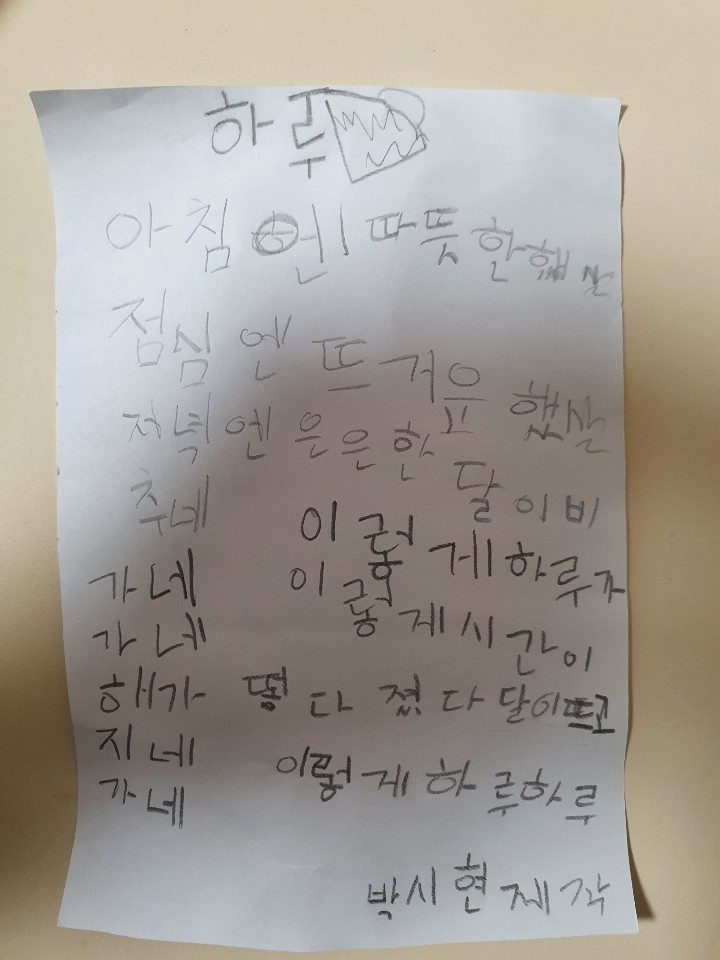 하루
아침엔 따뜻한 햅살
점심엔 뜨거운 햇살
저녁엔 은은한 달이 비
추네 이렇게 하루가
가네 이렇게 시간이
가네
해가 떴다 졌다 달이 뜨고
지네 이렇게 하루하루
가네
박시현 제작